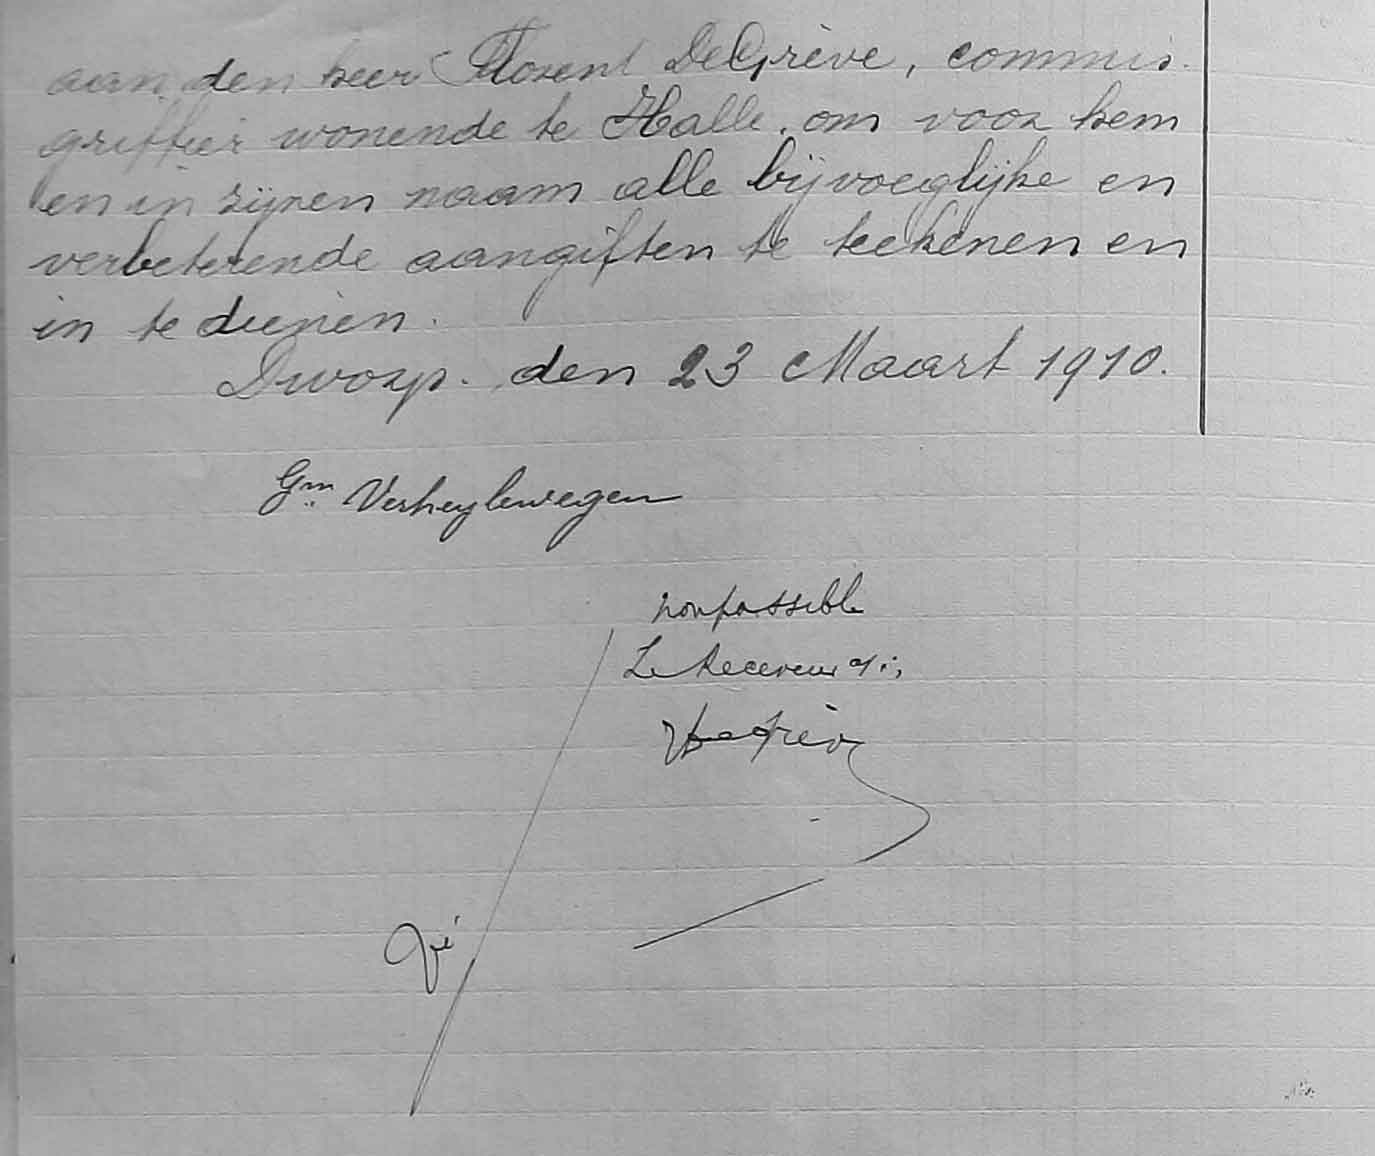 aan den heer Florent DeGrève, commis.
griffier wonende te Halle, om voor hem
en in zijnen naam alle bijvoeglijke en
verbeterende aangiften te teekenen en
in te dienen.
Dworp. den 23 Maart 1910.
Gm Verheylewegen
non passible
Le Receveur a.i,